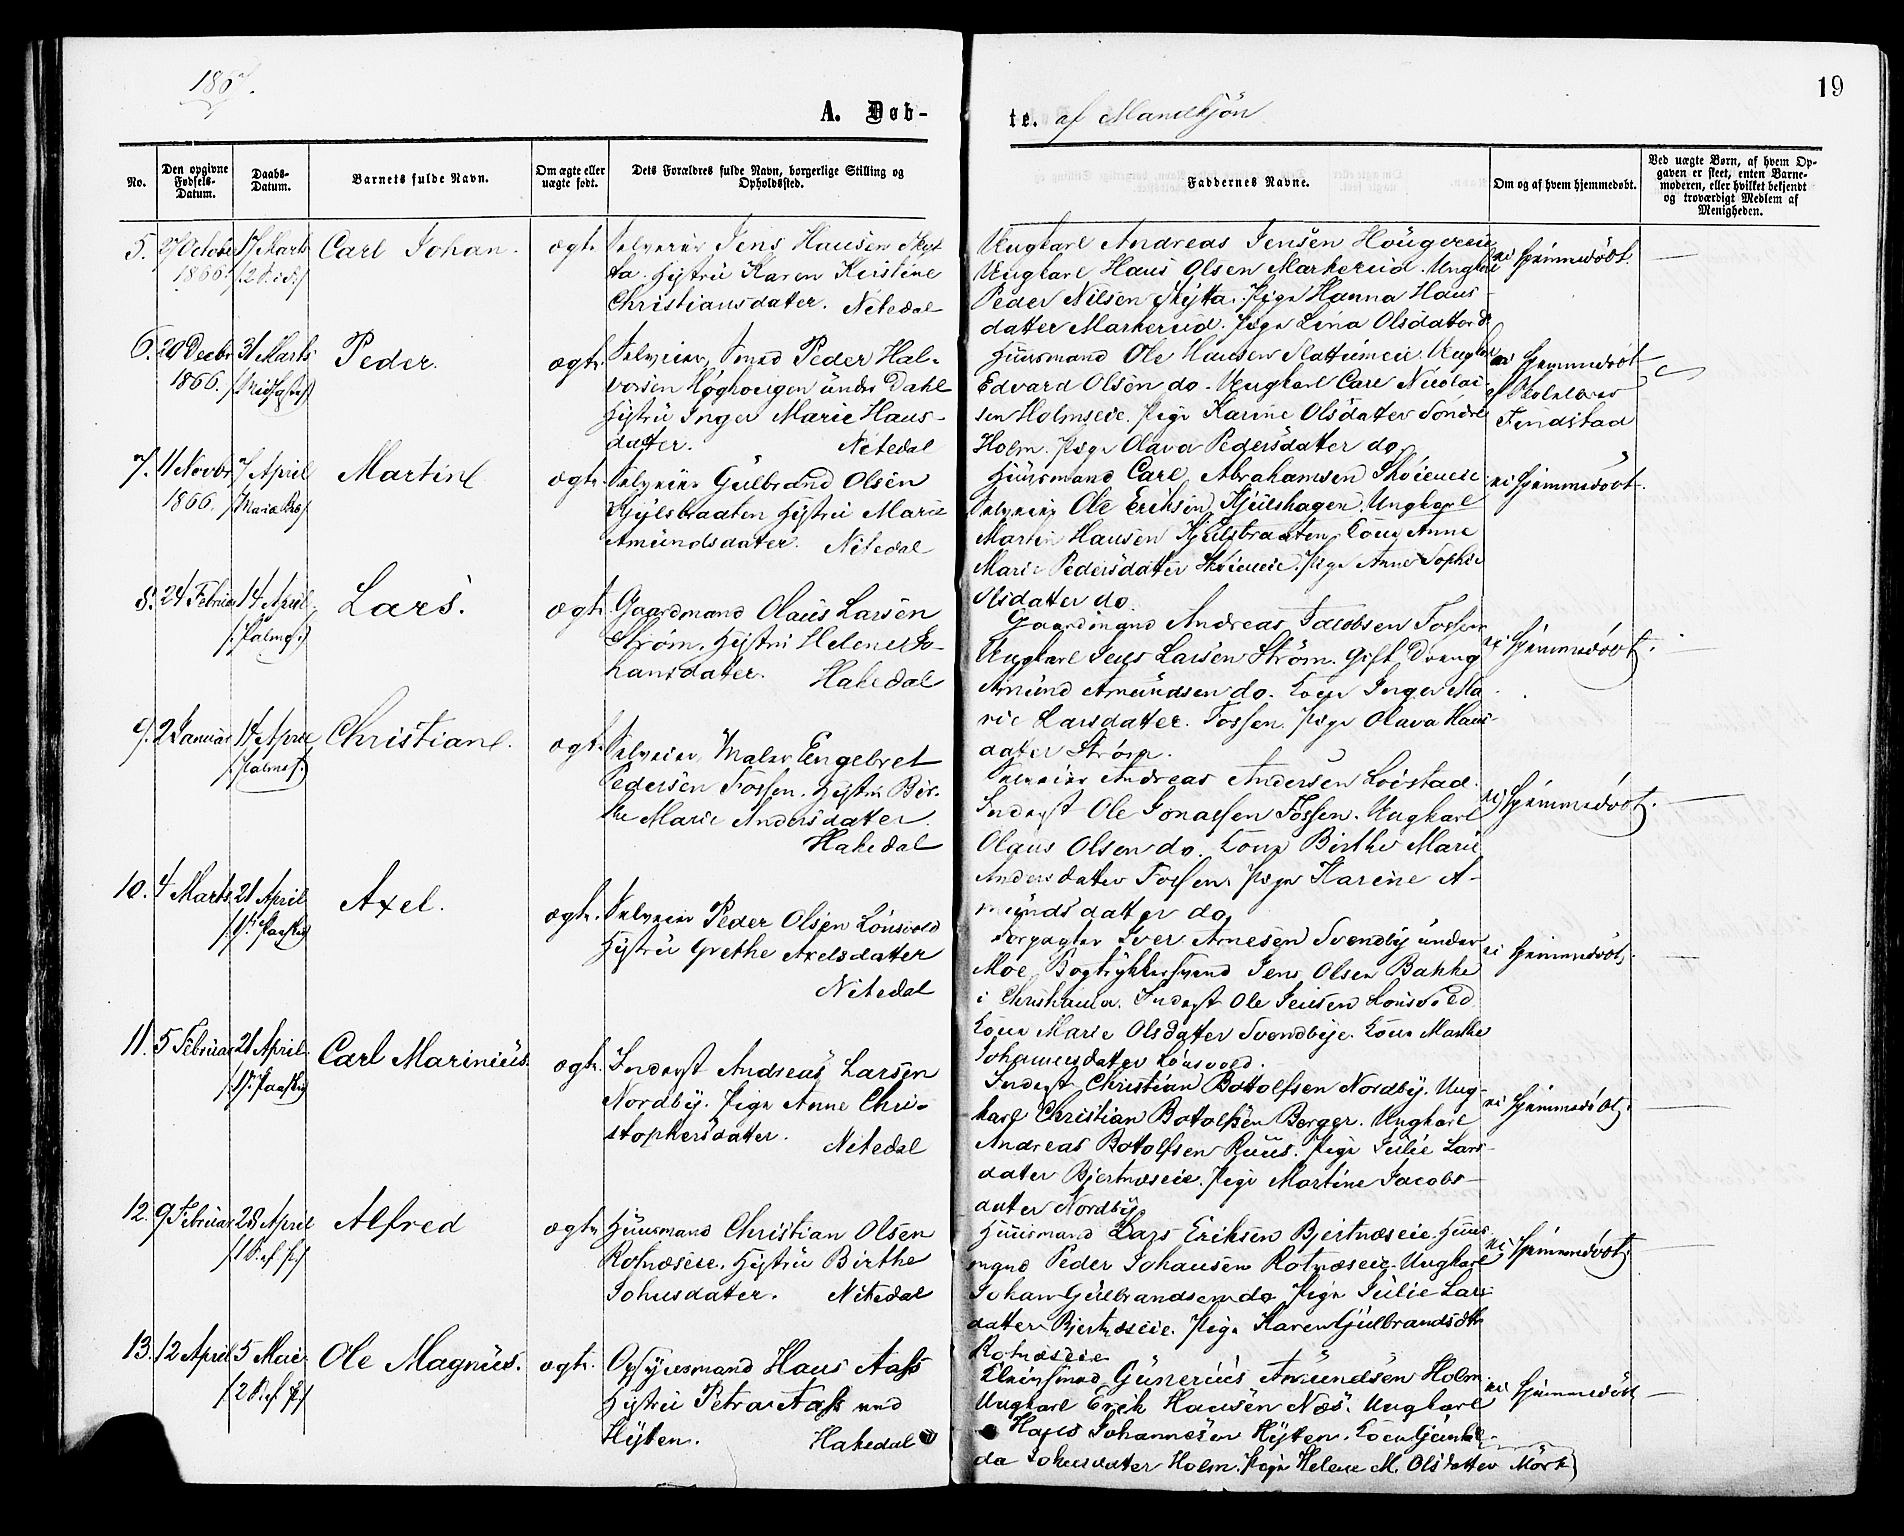 1867.
19
A. Døb-
te. af Mandkjøn
No.
Den opgivne Fødsels-Datum.
Daabs-Datum.
Barnets fulde Navn.
Om ægte eller uægte født.
Dets Forældres fulde Navn, borgerlige Stilling og Opholdssted.
Faddernes Navne.
Om og af hvem hjemmedøbt.
Ved uægte Børn, af hvem Opgaven er skeet, enten Barnemoderen, eller hvilket bekjendt og troværdigt Medlem af Menigheden.
5. 27 October 1866. 17 Marts Carl Johan. ægte.
Selveier Jens Hansen Skyt
ta. Hustru Karen Kirstine
Christiansdatter. Nitedal
Ungkarl Andreas Jensen Hougereie
Ungkarl Hans Olsen Markerud. Ungkarl
Peder Nilsen Skytta. Pige Hanna Hans-
datter Markerud. Pige Lina Olsdatter
ei Hjemmedøbt.
6. 20 Decbr 1866. 31 Marts Peder. ægte.
Selveier, Smed Peder Hal-
vorsen Høghougen under Dahl
Hustru Inger Marie Hans-
datter. Nitedal
Huusmand Ole Hansen Slattumeie. Ungkarl
Edvard Olsen do. Ungkarl Carl Nicolai-
sen Holmseie. Pige Karine Olsdatter Søndre
Holm. Pige Olava Pedersdatter do.
Hjemmedøbt
af
Findstad
7. 11 Novbr 1866. 7 April Martin ægte.
Selveier Gulbrand Olsen
Kjulsbraaten Hustru Marie
Amundsdatter. Nitedal
Huusmand Carl Abrahamsen Skoieneie
Selveier Ole Eriksen Kjulshagen. Ungkarl
Martin Hansen Kjulsbraaten. Kone Anne
Marie Pedersdatter Skoieneie. Pige Anne Sophie
Olsdatter do.
ei Hjemmedøbt.
8. 24 Februar 14 April Lars. ægte.
Gaardmand Olaus Larsen
Strøm. Hustru Helene Jo-
hansdatter. Hakedal
Gaardmand Andreas Jacobsen Fossen
Ungkarl Jens Larsen Strøm. Gift Dreng
Amund Amundsen do. Kone Inger Ma-
rie Larsdatter. Fossen. Pige Olava Hans-
datter Strøm.
ei Hjemmedøbt.
9. 2 Januar 14 April Christian. ægte.
Selveier, Maler Engebret
Pedersen Fossen. Hustru Bir-
the Marie Andersdatter.
Hakedal
Selveier Andreas Andersen Loistad.
Inderst Ole Jonassen Fossen. Ungkarl
Olaus Olsen do. Kone Birthe Marie
Andersdatter Fossen. Pige Karine A-
mundsdatter do.
ei Hjemmedøbt.
10. 4 Marts 21 April Axel. ægte.
Selveier Peder Olsen Lønsvold
Hustru Grethe Axelsdatter
Nitedal
Forpagter Iver Arnesen Svendby under
Moe. Bogtrykkersvend Jens Olsen Bakke
i Christiania. Inderst Ole Jensen Lønsvold
Kone Marie Olsdatter Svendbye. Kone Marthe
Johannesdatter Lønsvold.
ei Hjemmedøbt.
11. 5 Februar 21 April Carl Marinius. ægte.
Inderst Andreas Larsen
Nordby. Pige Anne Chri-
stophersdatter. Nitedal
Inderst Christian Botolfsen Nordby. Ung-
karl Christian Botolfsen Berger. Ungkarl
Andreas Botolfsen Ruus. Pige Julie Lars-
datter Bjertnæseie. Pige Martine Jacobs-
datter Nordby.
ei Hjemmedøbt.
12. 9 Februar 28 April Alfred ægte.
Huusmand Christian Olsen
Rotnæseie. Hustru Birthe
Johnsdatter. Nitedal
Huusmand Lars Eriksen Bjertnæseie. Huus-
mand Peder Johansen Rotnæseie. Ungkarl
Johan Gulbrandsen do. Pige Julie Lars-
datter Bjertnæseie. Pige Karen Gulbrandsdtr
Rotnæseie
ei Hjemmedøbt.
13. 12 April 5 Mai Ole Magnus. ægte.
Opsynsmand Hans Aass
Hustru Petra Aass
Hyten. Hakedal
Gunerius Amundsen Holm.
Ungkarl Erik Hansen Næs. Ungkarl
Hans Johannesen Hyten. Kone Gunhil-
da Johnsdatter Holm. Pige Helene M. Olsdatter Mørk
ei Hjemmedøbt